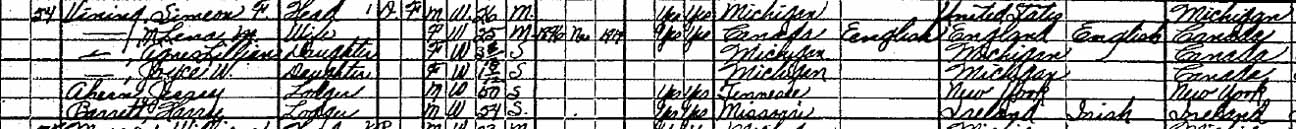 54 Vining, Simeon F. Head 1 F M W 26 M Yes Yes Michigan United States Michigan
— Lena M. Wife F W 25 M 1896 Na 1919 Yes Yes Canada English England English Canada
— Agnes Lillian Daughter F W S Michigan Michigan Canada
—, Joyce W. Daughter F W S Michigan Michigan Canada
Ahern, Lodger M W 50 S Yes Yes Tennessee New York New York
Barrett, Harry Lodger M W 54 S Yes Yes Missouri Ireland Irish Ireland